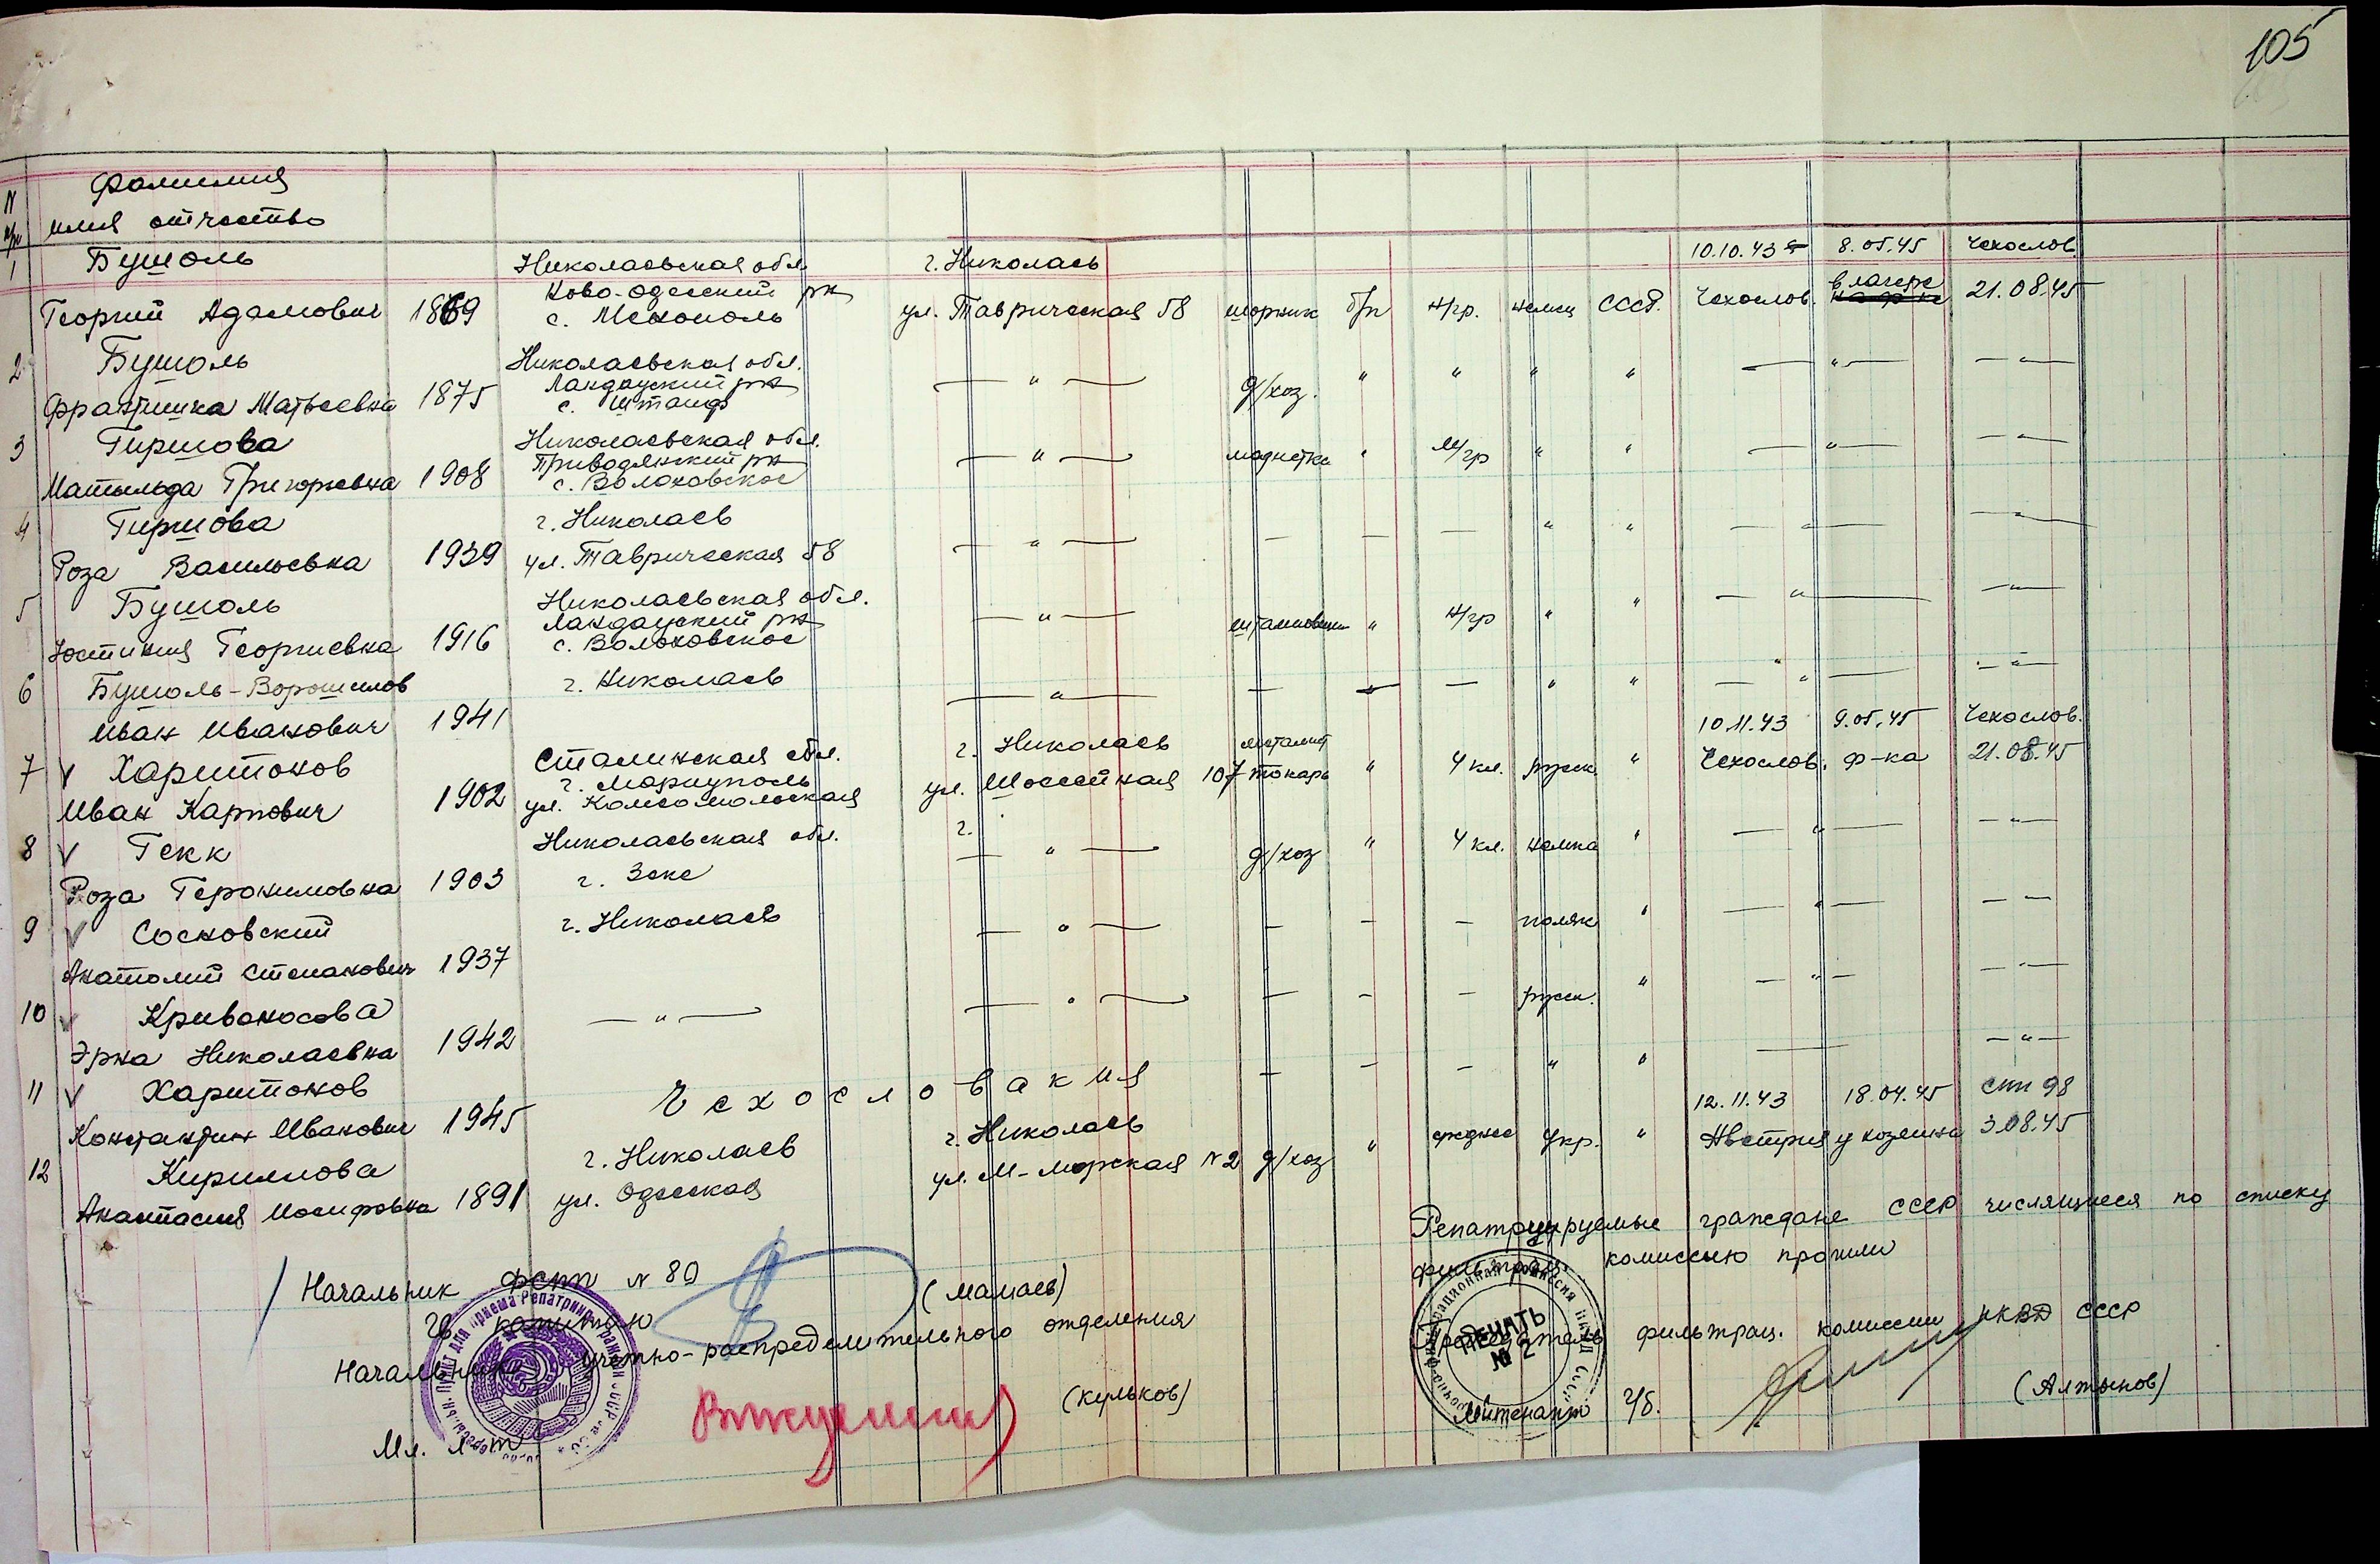 105
N п/п Фамилия
имя отчество
1 Бушоль Николаевская обл. г. Николаев 10.10.43 г 8.05.45 Чехослов.
Георгий Адамович 1869 Ново-Одесский рн ул. Таврическая 58 шорник б/п н/гр. немец СССР. Чехослов. в лагере 21.08.45
с. Мекополь
2 Бушоль Николаевская обл.
Францишка Матвеевна 1875 Ландауский рн — " — д/хоз. " " " " — " — — " —
с. Штанф
3 Гиршова Николаевская обл.
Матильда Григорьевна 1908 Приводянский рн — " — модистка " М/гр " " — " — — " —
с. Волоховское
4 Гиршова г. Николаев
Роза Васильевна 1939 ул. Таврическая 58 — " — — — — " " — " — — " —
5 Бушоль Николаевская обл.
Юстиния Георгиевна 1916 Ландауский рн — " — " н/гр " " — " — — " —
с. Волоховское
6 Бушоль-Ворошилов г. Николаев — " — — — — " " — " — — " —
Иван Иванович 1941
7 V Харитонов Сталинская обл. г. Николаев металист 10.11.43 9.05.45 Чехослов.
Иван Карпович 1902 г. Мариуполь ул. Шоссейная 107 токарь " 4 кл. русск. " Чехослов. ф-ка 21.08.45
ул. Комсомольская
8 V Гекк Николаевская обл. г.
Роза Геронимовна 1903 г. Зекс — " — д/хоз " 4 кл. немка " — " — — " —
9 V Сосновский г. Николаев
Анатолий Степанович 1937 — " — — — — поляк " — " — — —
10 V Кривоносова
Эрна Николаевна 1942 — " — — " — — — — русск. " — " — — " —
11 V Харитонов
Константин Иванович 1945 Чехословакия — — — " " — — " —
12 Кириллова г. Николаев г. Николаев 12.11.43 18.04.45 спп 98
Анастасия Иосифовна 1891 ул. Одесская ул. М-Морская N 2 д/хоз " среднее укр. " Австрия у хозяина 3.08.45
Репатриируемые граждане СССР числящиеся по списку
фильтрац. комиссию прошли
Начальник фспп N 80
Гв. капитан (Мамаев)
Начальник учетно-распределительного отделения
Мл. л-т (Кульков)
Председатель фильтрац. комиссии НКВД СССР
Лейтенант г/б. (Алтынов)
ПЕЧАТЬ
№ 2